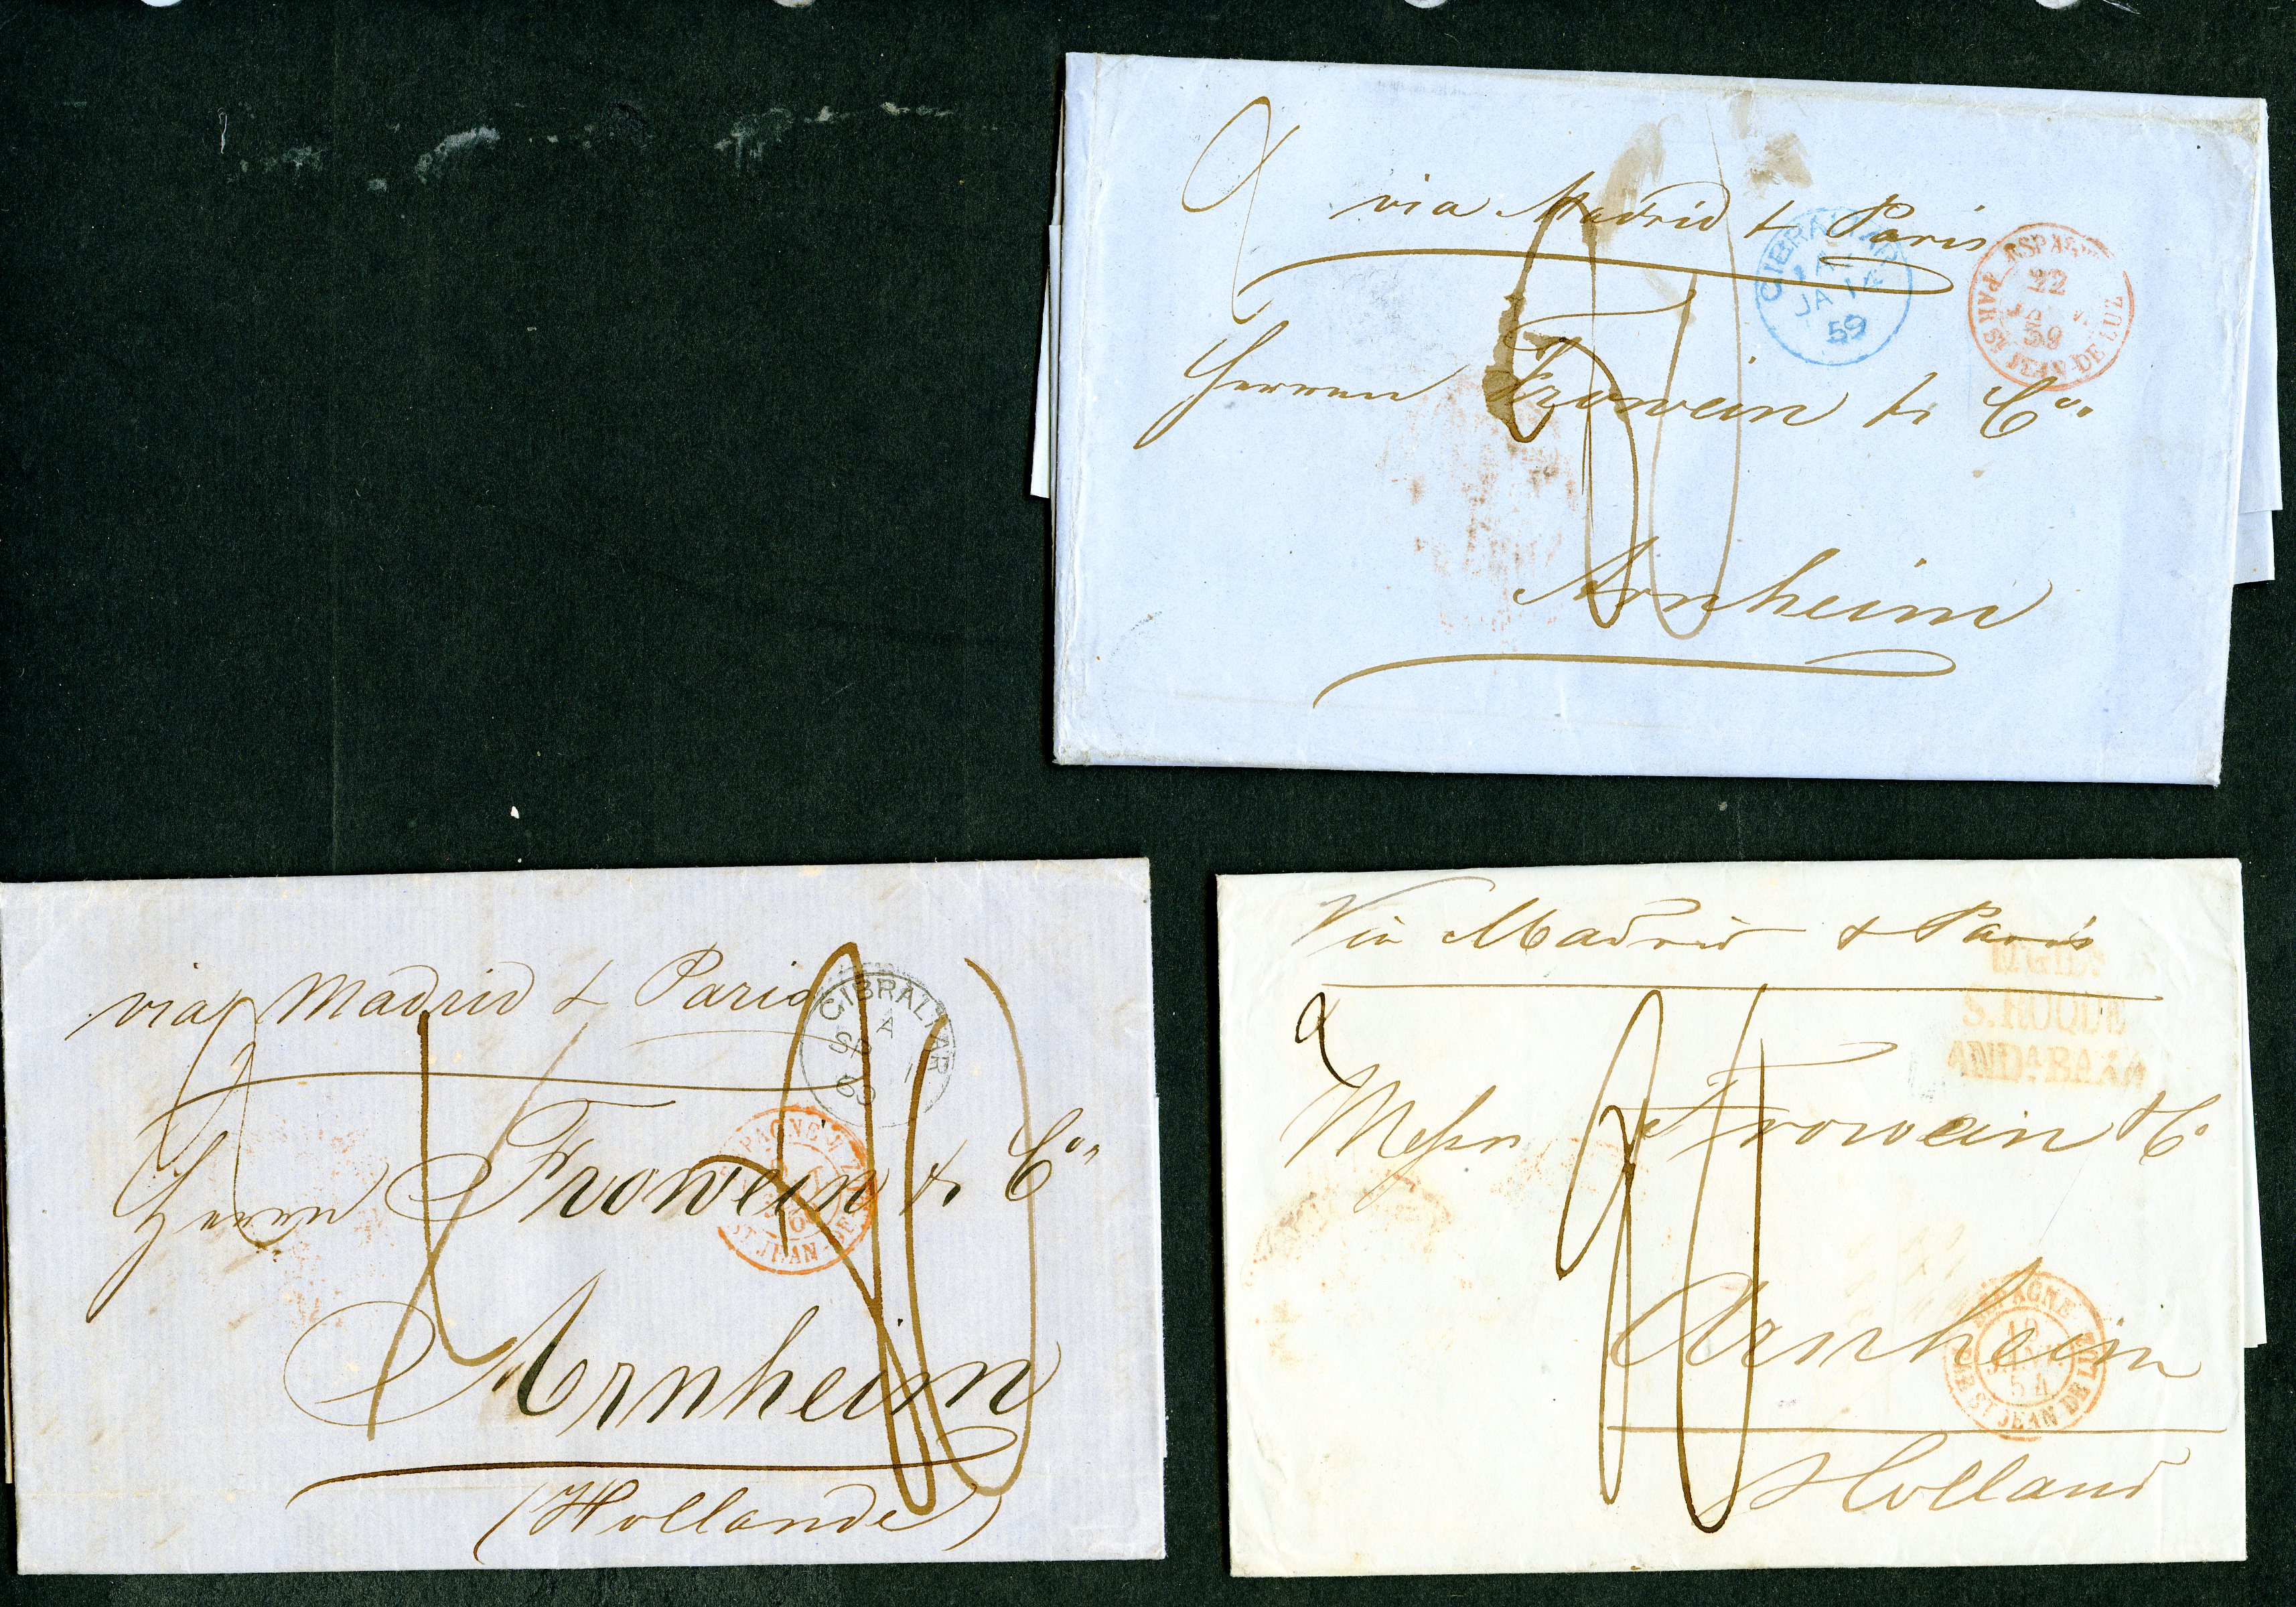 via Madrid & Paris
GIBRALTAR
A
JA 14
59
ESPAGNE
22
59
PAR ST JEAN-DE-LUZ
Herren Frowein & Co.
Arnheim
via Madrid & Paris
GIBRALTAR
A
SP 1
60
ESPAGNE
60
ST JEAN-DE-LUZ
Herrn Frowein & Co.
Arnheim
(Hollande)
Via Madrid & Paris
S. ROQUE
ANDA. BAXA
Messrs Frowein & Co.
Arnheim
ESPAGNE
10
JANV.
54
ST JEAN-DE-LUZ
Holland